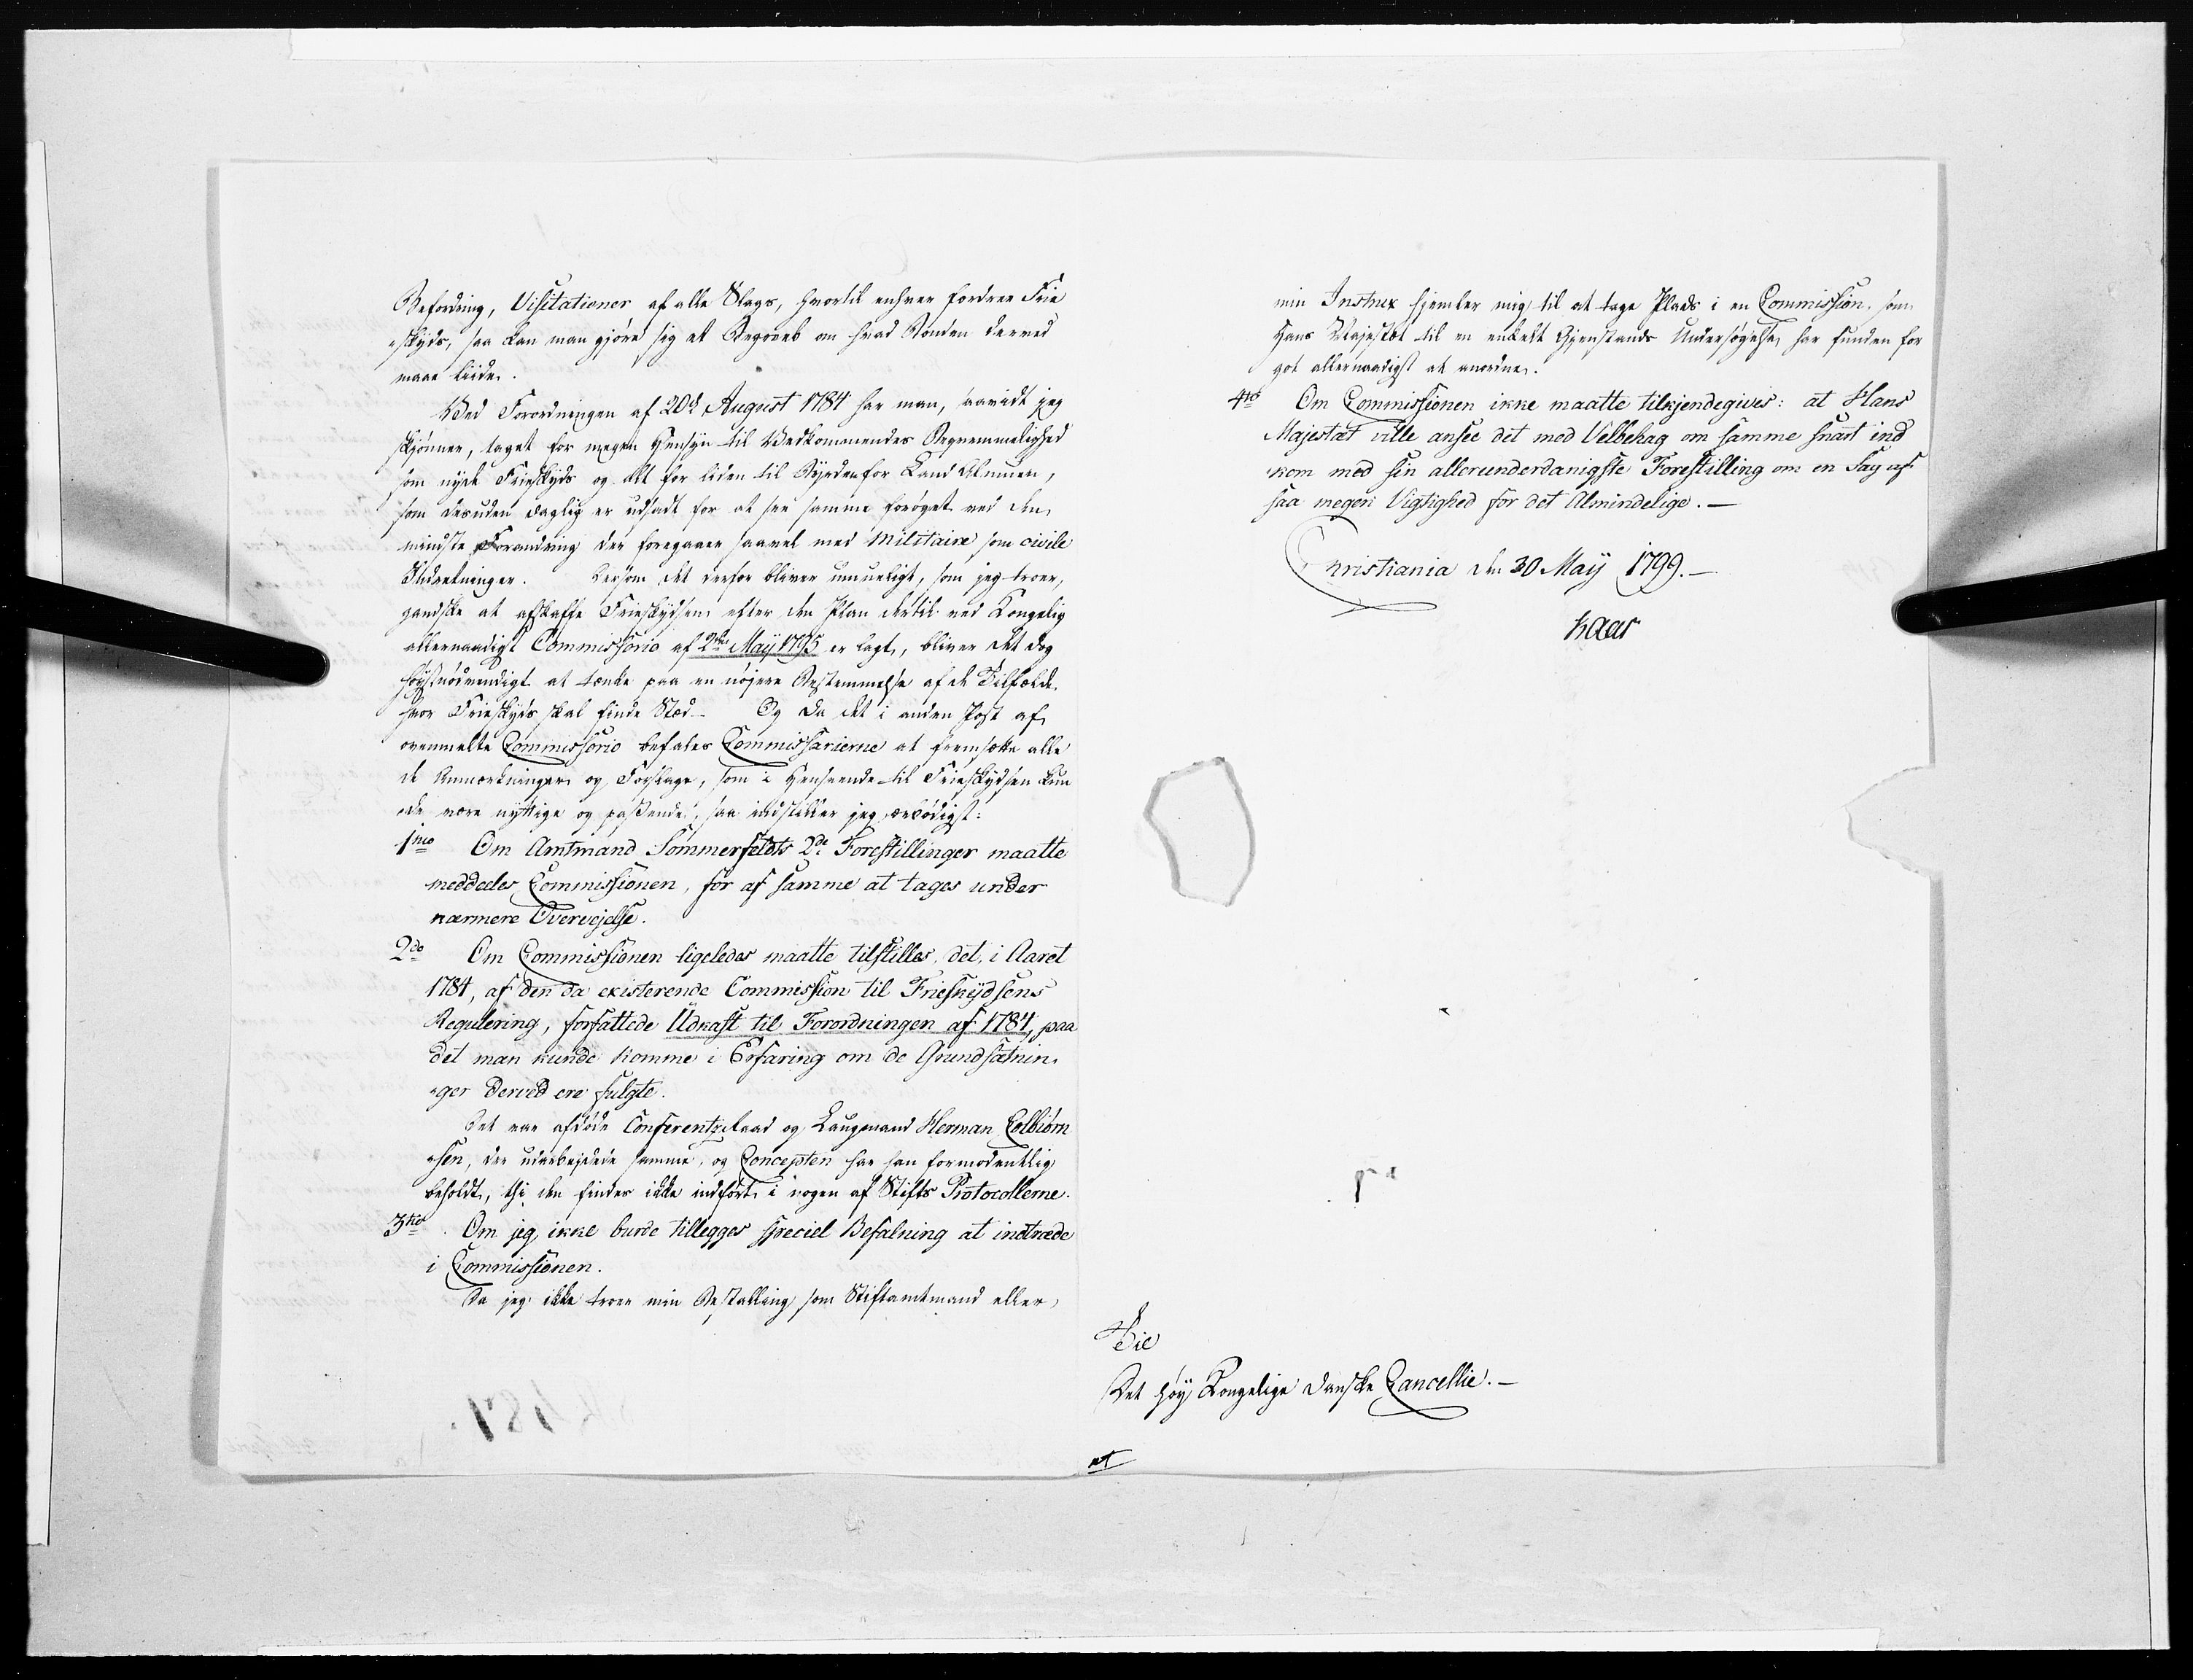 Befordring, Visitationer af alle Slags, hvortil enhver fordrer Frie
skyds, saa kan man gjøre sig et Begreeb om hvad Bonden derved
maae liide.
Ved Forordningen af 20d August 1784 har man, saavidt jeg
skjønner, taget for megen Hensyn til Vedkommendes Beqvemmelighed
som nyde Frieskyds og alt for liden til Byrden for Land Almuen,
som desuden daglig er udsadt for at see samme forøget ved den
mindste Forandring der foregaaer saavel med Militaire som civile
Indretninger. Dersom det derfor bliver umueligt, som jeg troer,
gandske at afskaffe Frieskydsen efter den Plan dertil ved Kongelig
allernaadigst Commissorio af 2den Maÿ 1795 er lagt, bliver det dog
høystnødvendigt at tænke paa en nøjere Bestemmelse af de Tilfælde
hvor Frieskyds skal finde Sted. Og da det i anden Post af
ovenmelte Commissorio befales Commissarierne at fremsætte alle
de Anmærkninger og Forslage, som i Henseende til Frieskydsen kun
de være nyttige og passende, saa indstiller jeg ærbødigst:
1mo Om Amtmand Sommerfeldts 2de Forestillinger maatte
meddeeles Commissionen, for af samme at tages under
nærmere Overvejelse.
2do Om Commissionen ligeledes maatte tilstilles, det, i Aaret
1784, af den da existerende Commission til Frieskÿdsens
Regulering, forfattede Udkast til Forordningen af 1784, paa
det man kunde komme i Erfaring om de Grundsætnin-
ger derved ere fulgte.
Det var afdøde Conferentzraad og Laugmand Herman Colbiørn
sen, der udarbejdede samme, og Concepten har han formodentlig
beholdt, thi den findes ikke indført i nogen af Stifts Protocollerne.
3tio Om jeg ikke burde tillegges speciel Befalning at indtræde
i Commissionen.
Da jeg ikke troer min Bestalling som Stiftamtmand eller
min Instrux hjemler mig til at tage Plads i en Commission, som
Hans Majestæt til en enkelt Gjenstands Undersøgelse, har funden for
got allernaadigst at anordne.
4to Om Commissionen ikke maatte tilkjendegives: at Hans
Majestæt ville ansee det med Velbehag om samme snart ind
kom med sin allerunderdanigste Forestilling om en Sag af
saa megen Vigtighed for det Almindelige. —
Christiania den 30 Maÿ 1799. —
Kaas
Til
Det høy Kongelige Danske Cancellie. —